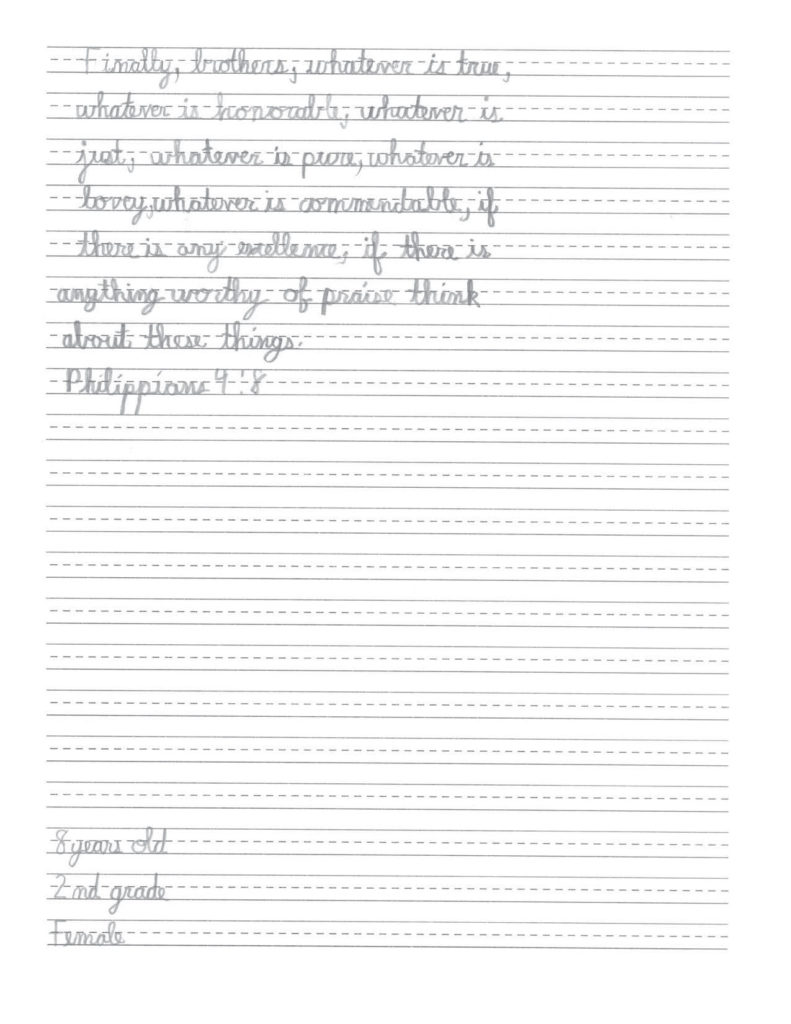 Finally, brothers, whatever is true,
whatever is honorable, whatever is
just, whatever is pure, whatever is
lovey, whatever is commendable, if
there is any excellence, if there is
anything worthy of praise think
about these things.
Philippians 4:8
8 years old
2nd grade
Female